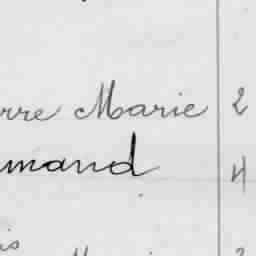 rre Marie 2
mand 4
is